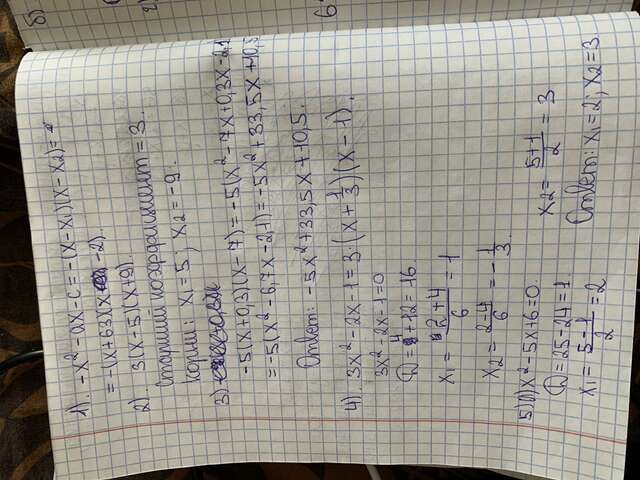 б)
1). -x² - ax - c = -(x - x₁)(x - x₂) =
= -(x + 63)(x - 2).
2). 3(x - 5)(x + 9).
Старший коэффициент = 3.
Корни: x₁ = 5; x₂ = -9.
3)
-5(x + 0,3)(x - 7) = -5(x² - 7x + 0,3x - 2,1
= -5(x² - 6,7x - 2,1) = -5x² + 33,5x + 10,5
Ответ: -5x² + 33,5x + 10,5.
4) 3x² - 2x - 1 = 3·(x + 1/3)(x - 1).
3x² - 2x - 1 = 0
D = 4 + 12 = 16
x₁ = (2 + 4)/6 = 1
x₂ = (2 - 4)/6 = -1/3.
5) x² - 5x + 6 = 0
D = 25 - 24 = 1
x₁ = (5 - 1)/2 = 2
x₂ = (5 + 1)/2 = 3
Ответ: x₁ = 2; x₂ = 3